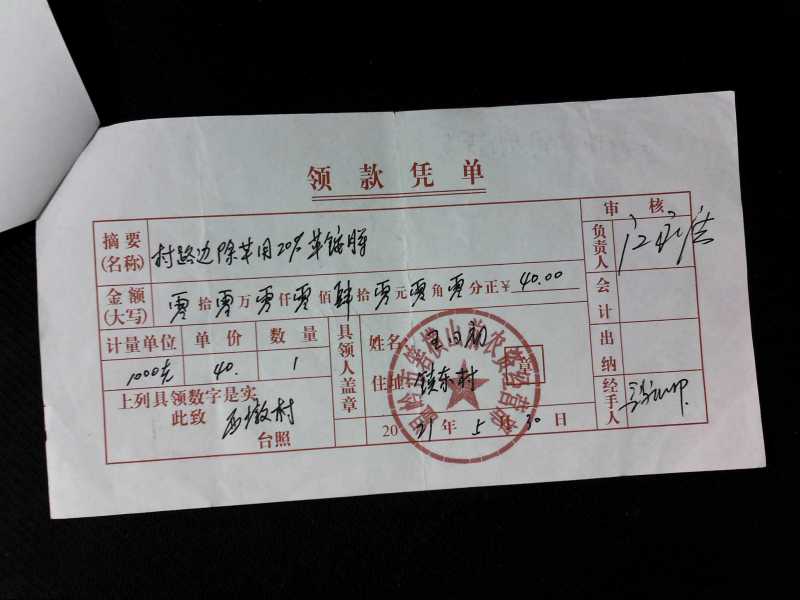 领款凭单
摘要(名称) 村路边除草用20%草铵膦
审核
负责人
金额(大写) 零拾零万零仟零佰肆拾零元零角零分正¥ 40.00
会计
计量单位 单价 数量
1000克 40. 1
具领人盖章
姓名
住址 镇东村
出纳
上列具领数字是实
此致 西墩村
台照
2021年5月30日
经手人